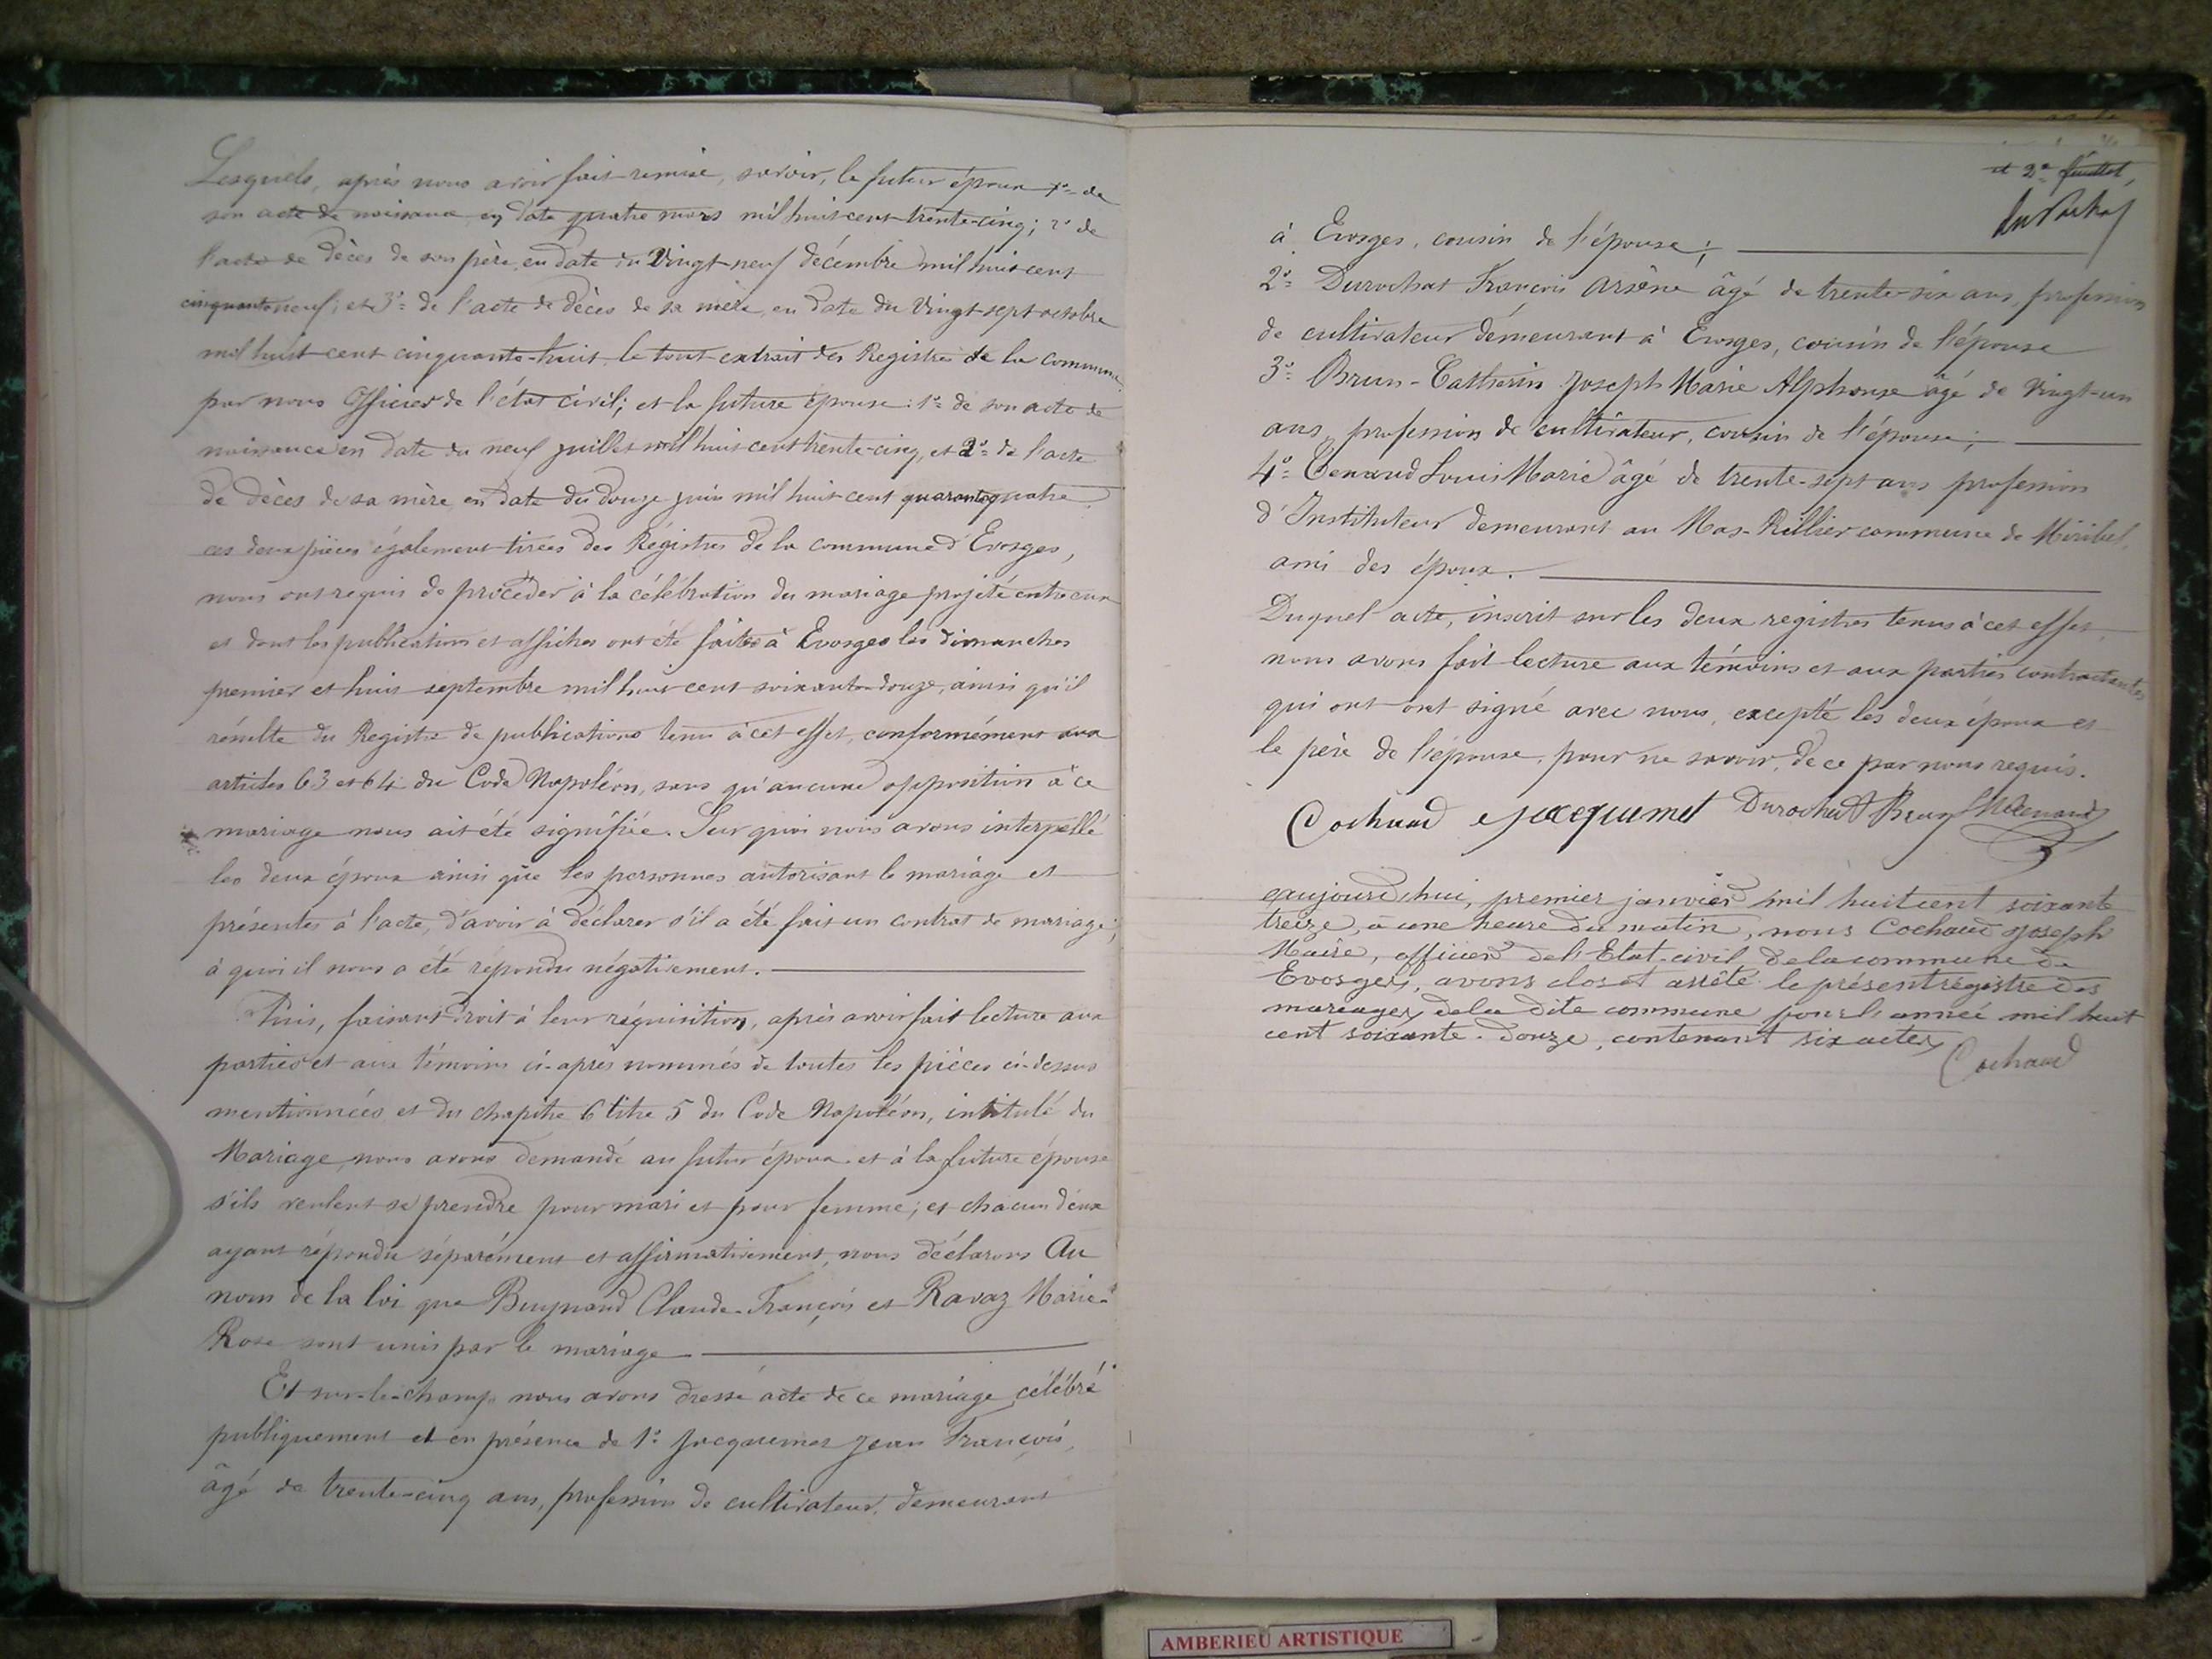 Lesquels, après nous avoir fait remise, savoir, le futur époux 1º de
son acte de naissance en date quatre mars mil huit cent trente-cinq; 2º de
l'acte de dècès de son père, en date du Vingt-neuf décembre mil huit cent
cinquante neuf; et 3º de l'acte de décès de sa mère, en date du Vingt-sept octobre
mil huit cent cinquante-huit, le tout extrait des Registres de la commune
par nous Officier de l'état civil; et la future épouse: 1º de son acte de
naissance en date du neuf juillet mil huit cent trente-cinq, et 2º de l'acte
de décès de sa mère, en date du douze juin mil huit cent quarante quatre,
ces deux pièces également tirées des Régistres de la commune d'Evosges,
nous ont requis de procéder à la célébration du mariage projeté entre eux
et dont les publications et affiches ont été faites à Evosges les dimanches
premier et huit septembre mil huit cent soixante-douze, ainsi qu'il
résulte du Registre de publications tenu à cet effet, conformément aux
articles 63 et 64 du Code Napoléon, sans qu'aucune opposition à ce
mariage nous ait été signifiée. Sur quoi nous avons interpellé
les deux époux ainsi que les personnes autorisant le mariage et
présentes à l'acte, d'avoir à déclarer s'il a été fait un contrat de mariage;
à quoi il nous a été répondu négativement.
Puis, faisant droit à leur réquisition, après avoir fait lecture aux
parties et aux témoins ci-après nommés de toutes les pièces ci-dessus
mentionnées et du chapitre 6 titre 5 du Code Napoléon, intitulé du
Mariage, nous avons demandé au futur époux et à la future épouse
s'ils veulent se prendre pour mari et pour femme; et chacun d'eux
ayant répondu séparément et affirmativement, nous déclarons Au
nom de la loi que Buynand Claude-François et Ravaz Marie-
Rose sont unis par le mariage
Et sur-le-champ nous avons dressé acte de ce mariage célébré
publiquement et en présence de 1º Jacquemet Jean François,
âgé de trente-cinq ans, profession de cultivateur, demeurant
et 2e feuillet,
à Evosges, cousin de l'épouse;
2º Durochat François Arsène âgé de trente-six ans, profession
de cultivateur demeurant à Evosges, cousin de l'épouse
3º Brun-Catherin Joseph Marie Alphonse âgé de Vingt-un
ans, profession de cultivateur, cousin de l'épouse;
4º Tenand Louis Marie âgé de trente-sept ans profession
d'Instituteur demeurant au Mas-Rillier commune de Miribel,
ami des époux.
Duquel acte, inscrit sur les deux registres tenus à cet effet,
nous avons fait lecture aux témoins et aux parties contractantes
qui ont ont signé avec nous, excepté les deux époux et
le père de l'épouse, pour ne savoir, de ce par nous requis.
Cochaud Jacquemet Durochat Brun
aujourd'hui, premier janvier mil huit cent soixante
treize, a une heure du matin, nous Cochaud Joseph
Maire, officier del'Etat-civil, delacommune de
Evosges, avons clos et arrêté le présent régistre des
mariages dela dite commune pour l'année mil huit
cent soixante-douze, contenant six actes
Cochaud
AMBERIEU ARTISTIQUE